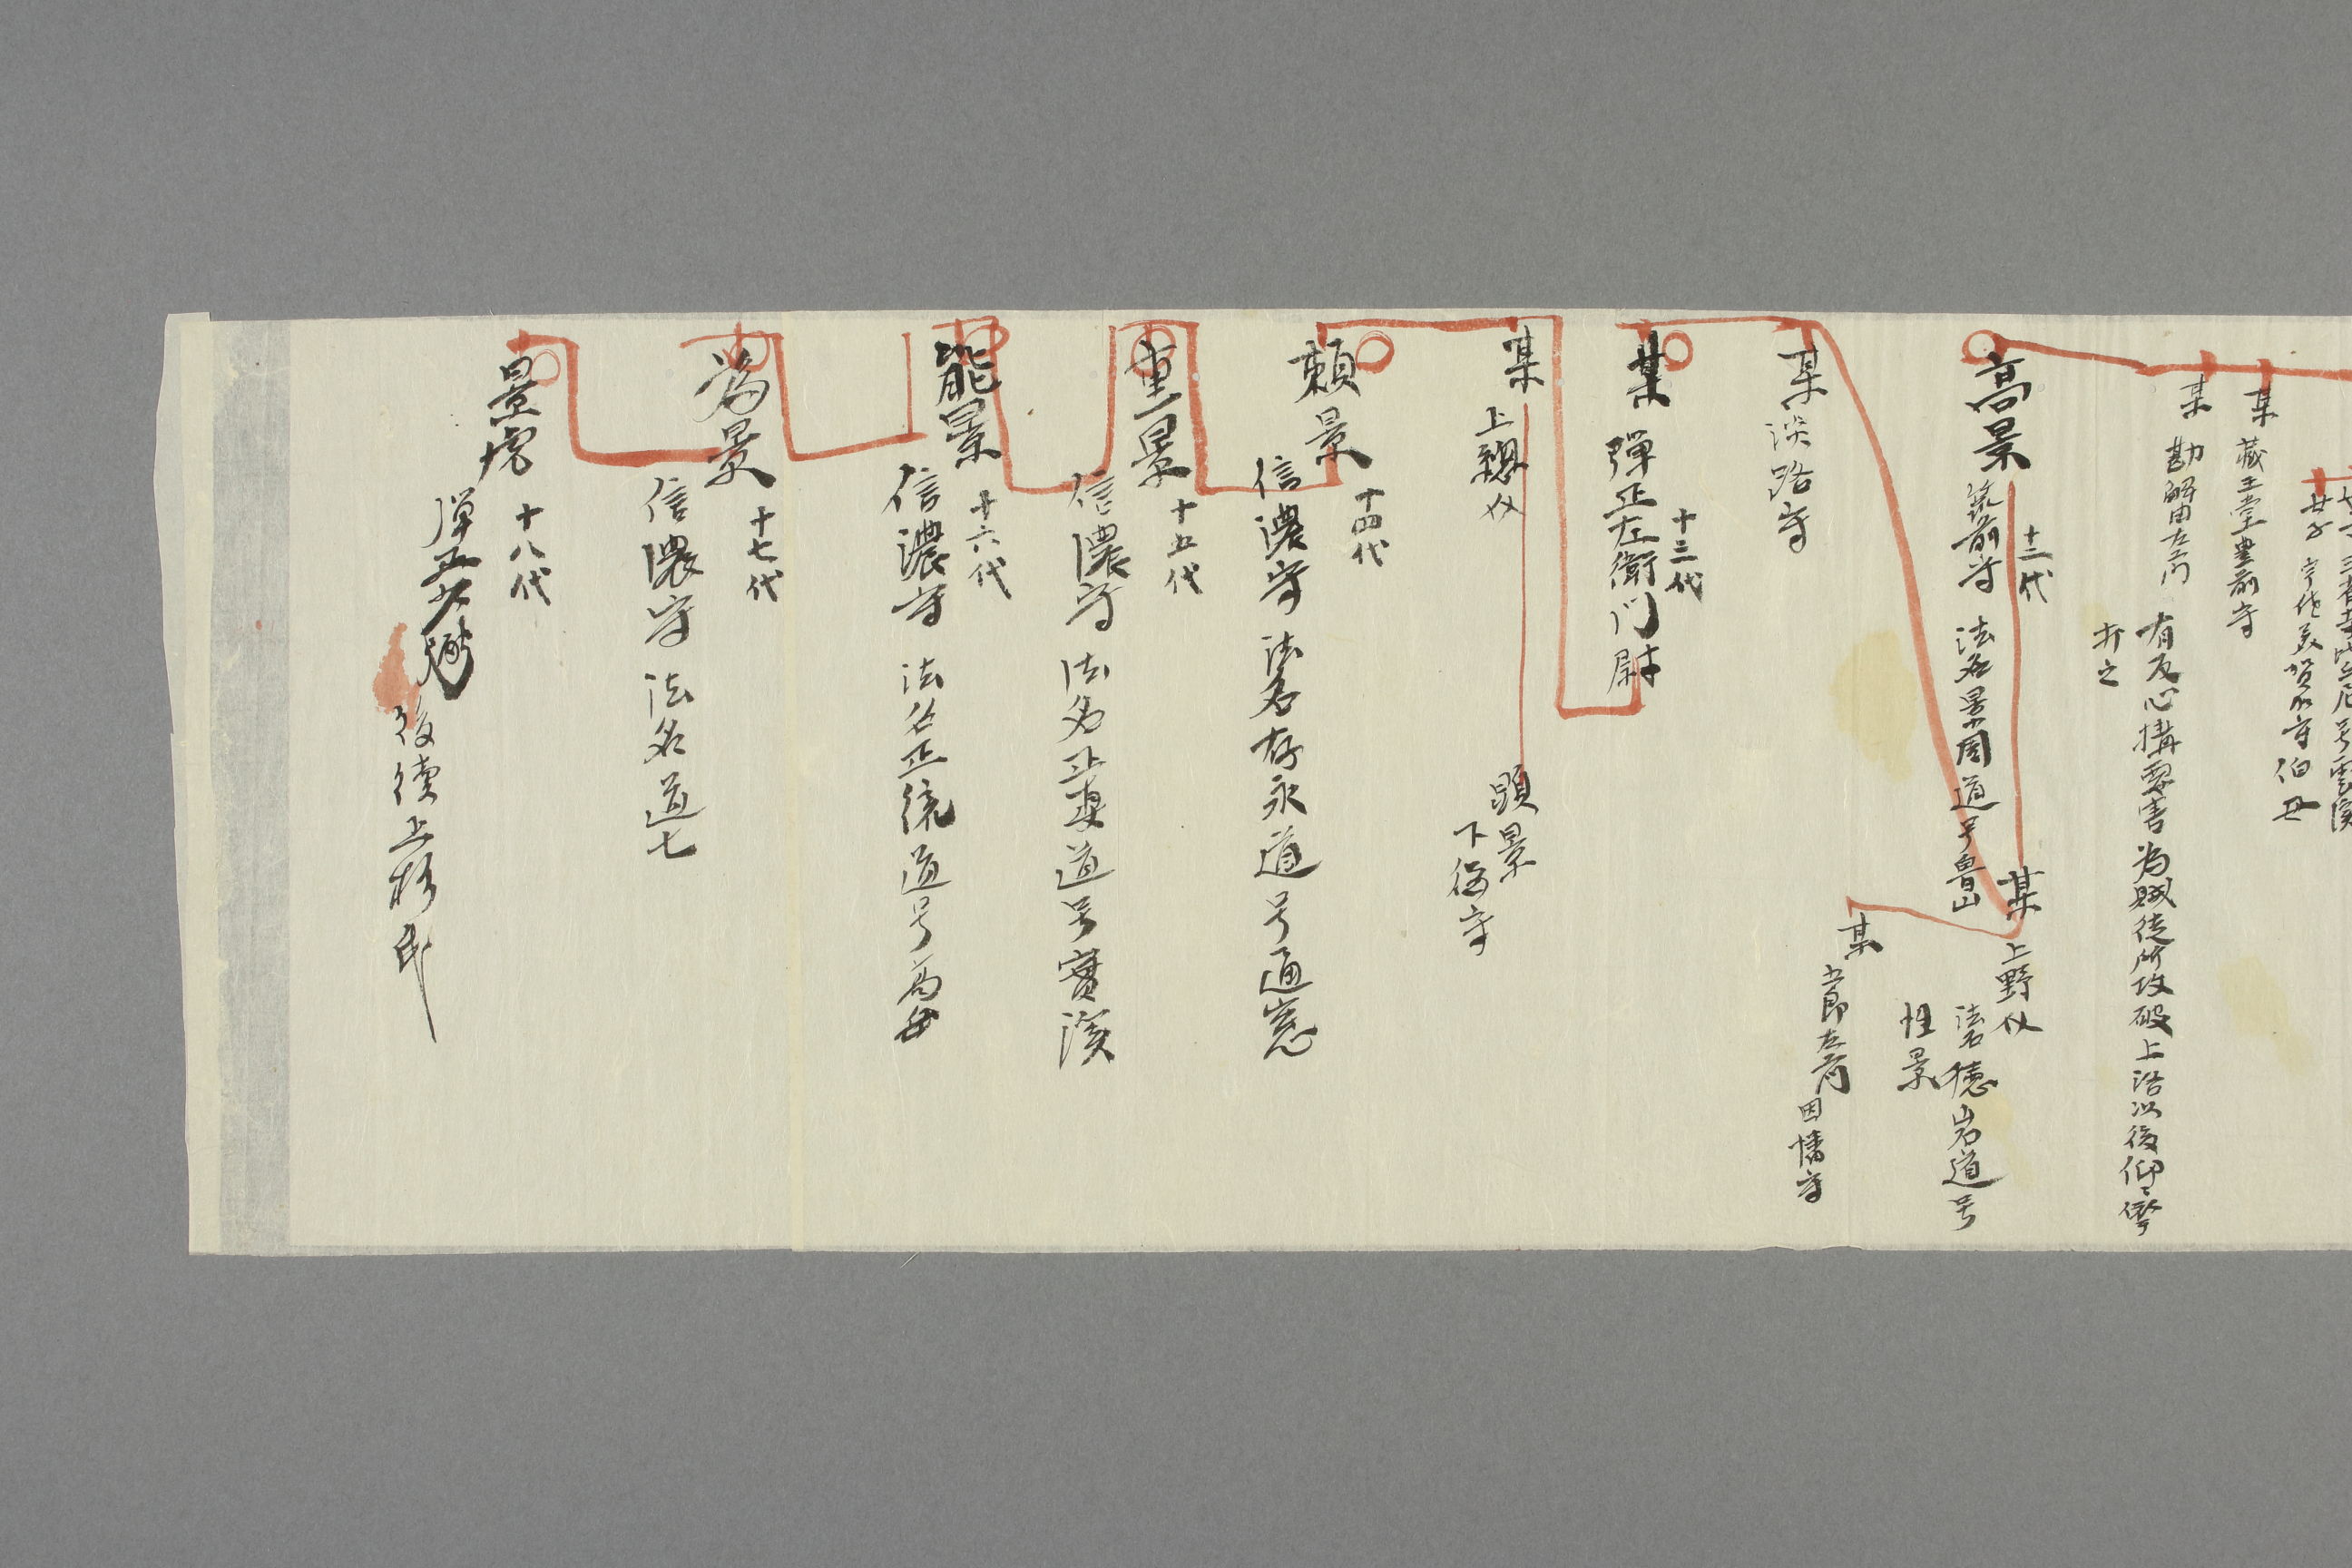 女子 
伯母
某 藏王堂豊前守
某 勘解由左衛門
有反心構要害為賊徒所攻破上洛以後仰
討之
高景 十二代
筑前守 法名景周道号魯山
某 上野介
法名徳岩道号
性景
某
因幡守
某 淡路守
某 十三代
弾正左衛門尉
某 上總介
顕景
下総守
頼景 十四代
信濃守 法名存永道号通窓
重景 十五代
信濃守 法名 道号實溪
能景 十六代
信濃守 法名正統道号高岳
為景 十七代
信濃守 法名道七
景虎 十八代
弾正少弼
後續上杉氏